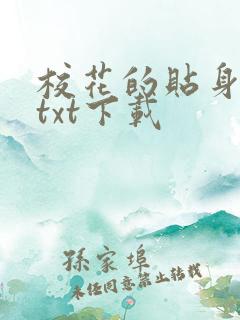 校花的貼身
txt下載
孫家埠
未經同意禁止轉載